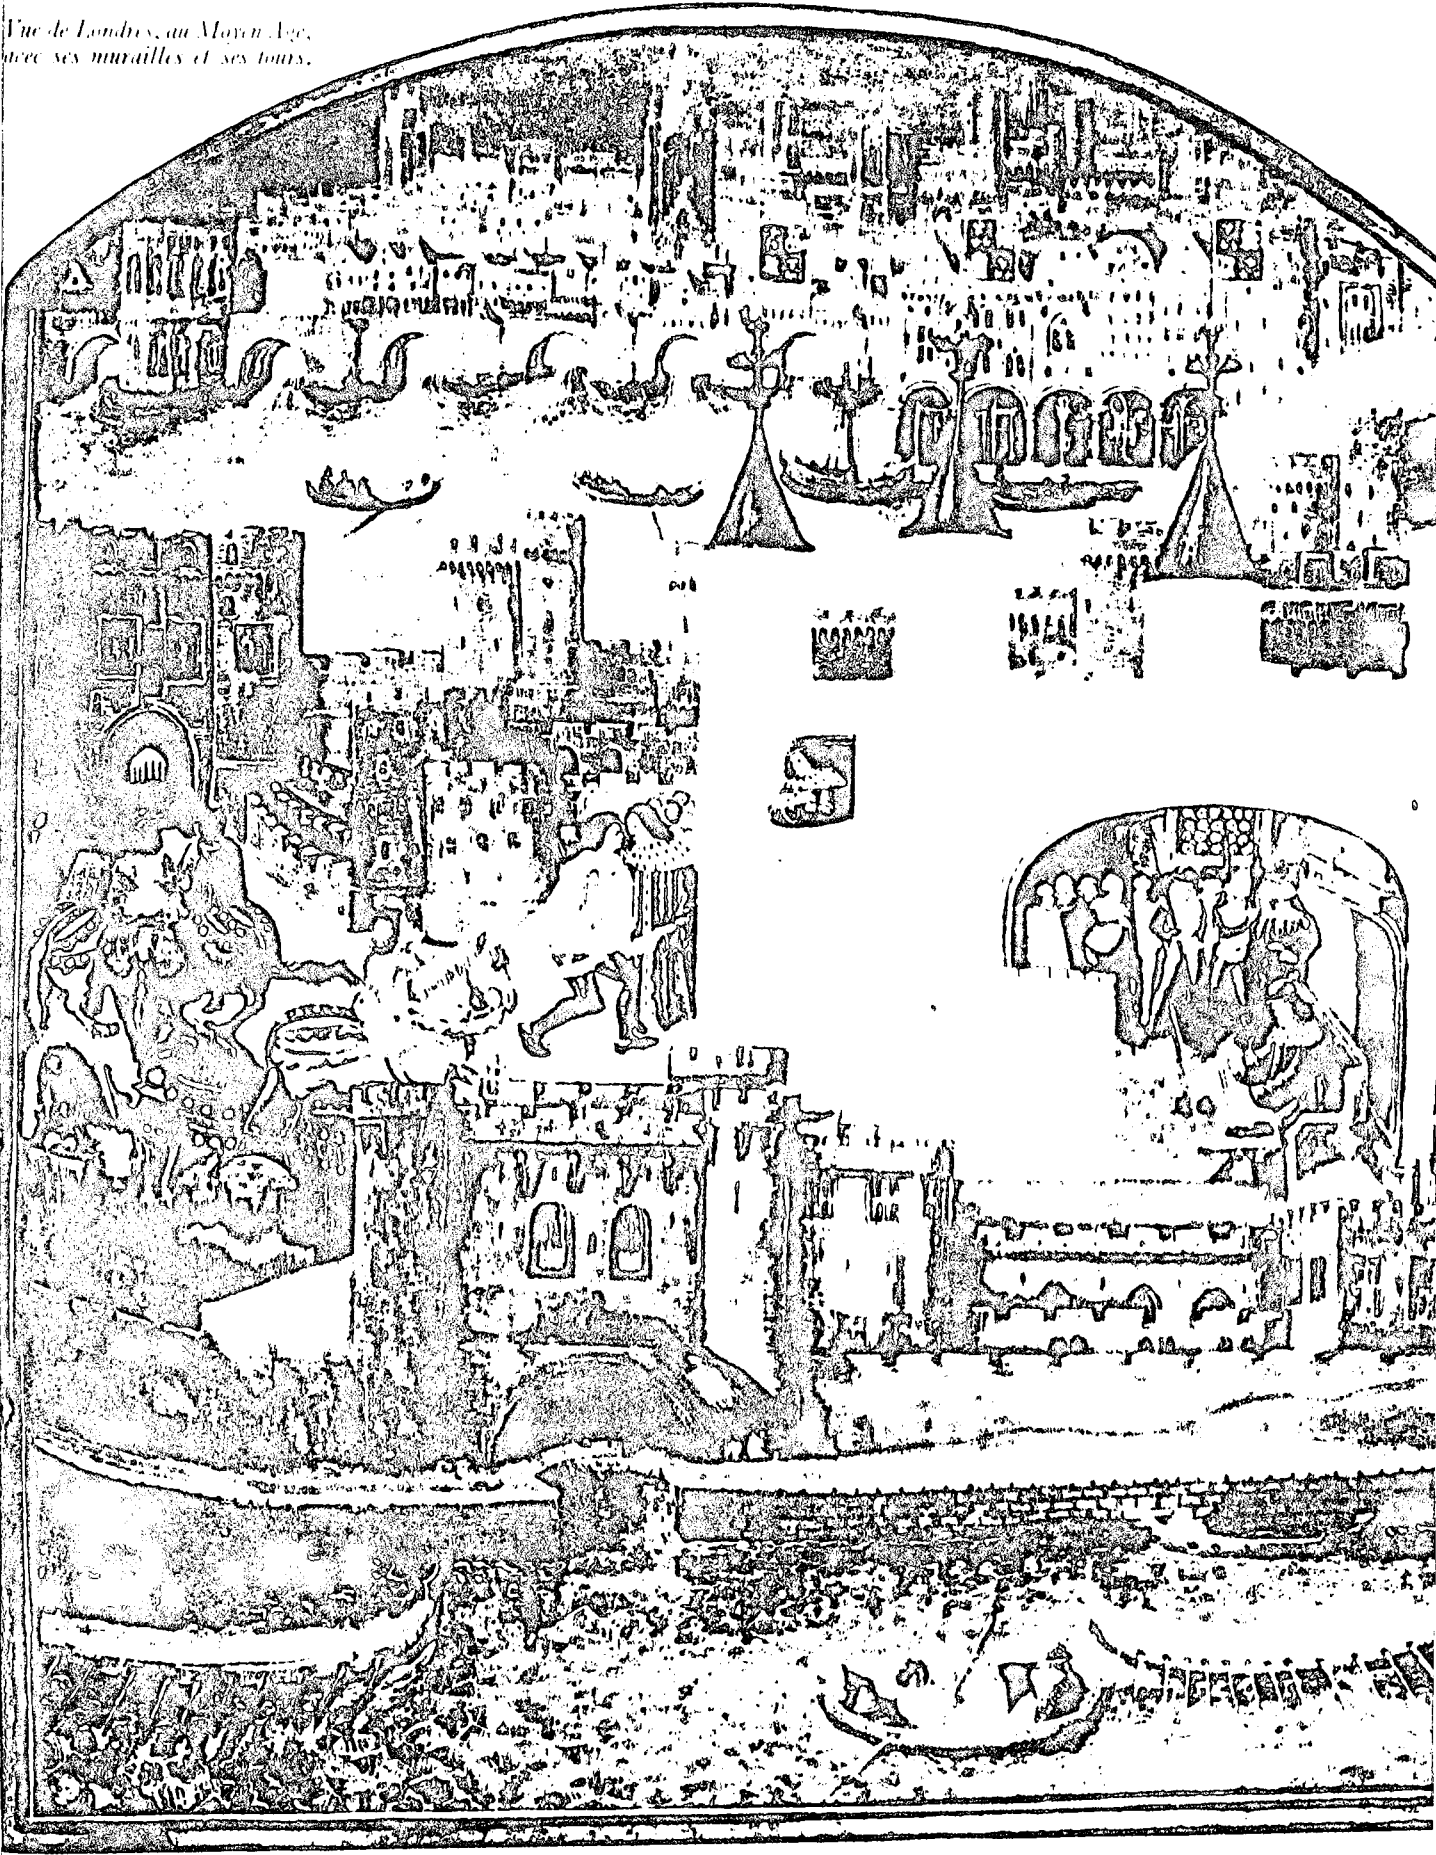 Vue de Londres, au Moyen Age,
avec ses murailles et ses tours.